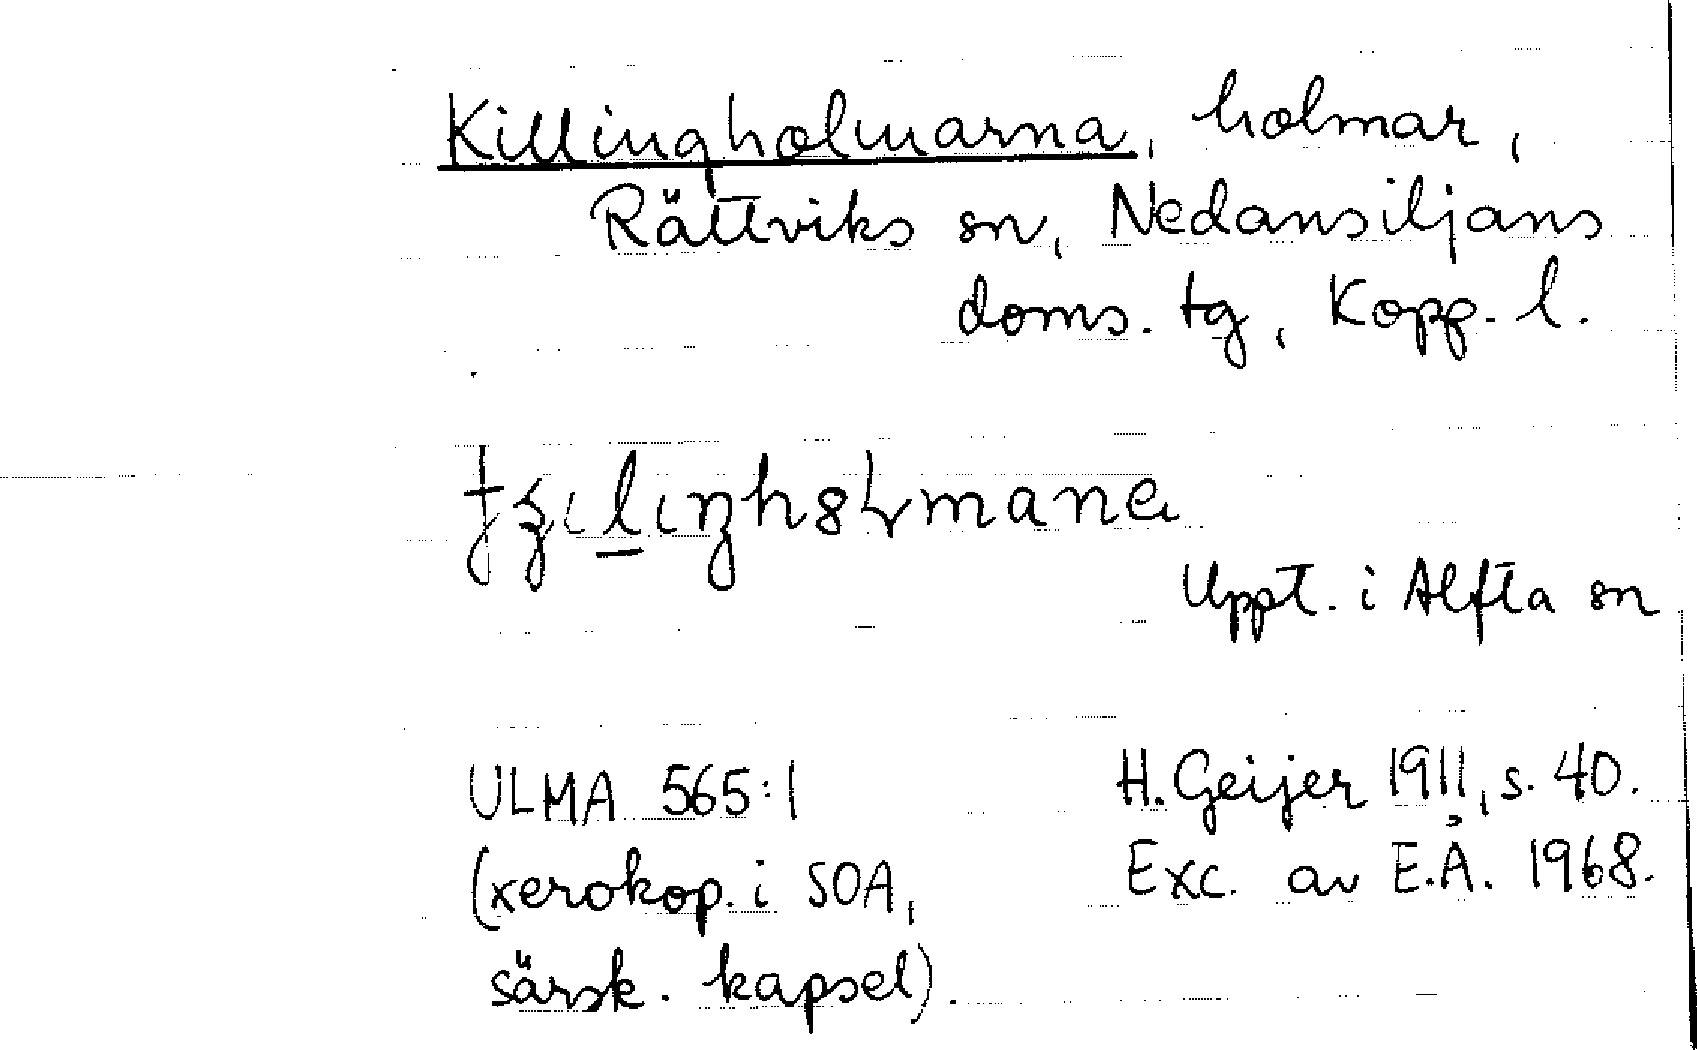 Killingholmarna, holmar,
Rättviks sn, Nedansiljans
doms. tg, Kopp. l.
Uppt. i Alfta sn
ULMA 565:1
H. Geijer 1911, s. 40.
(xerokop. i SOA,
Exc. av E.Å. 1968.
särsk. kapsel).